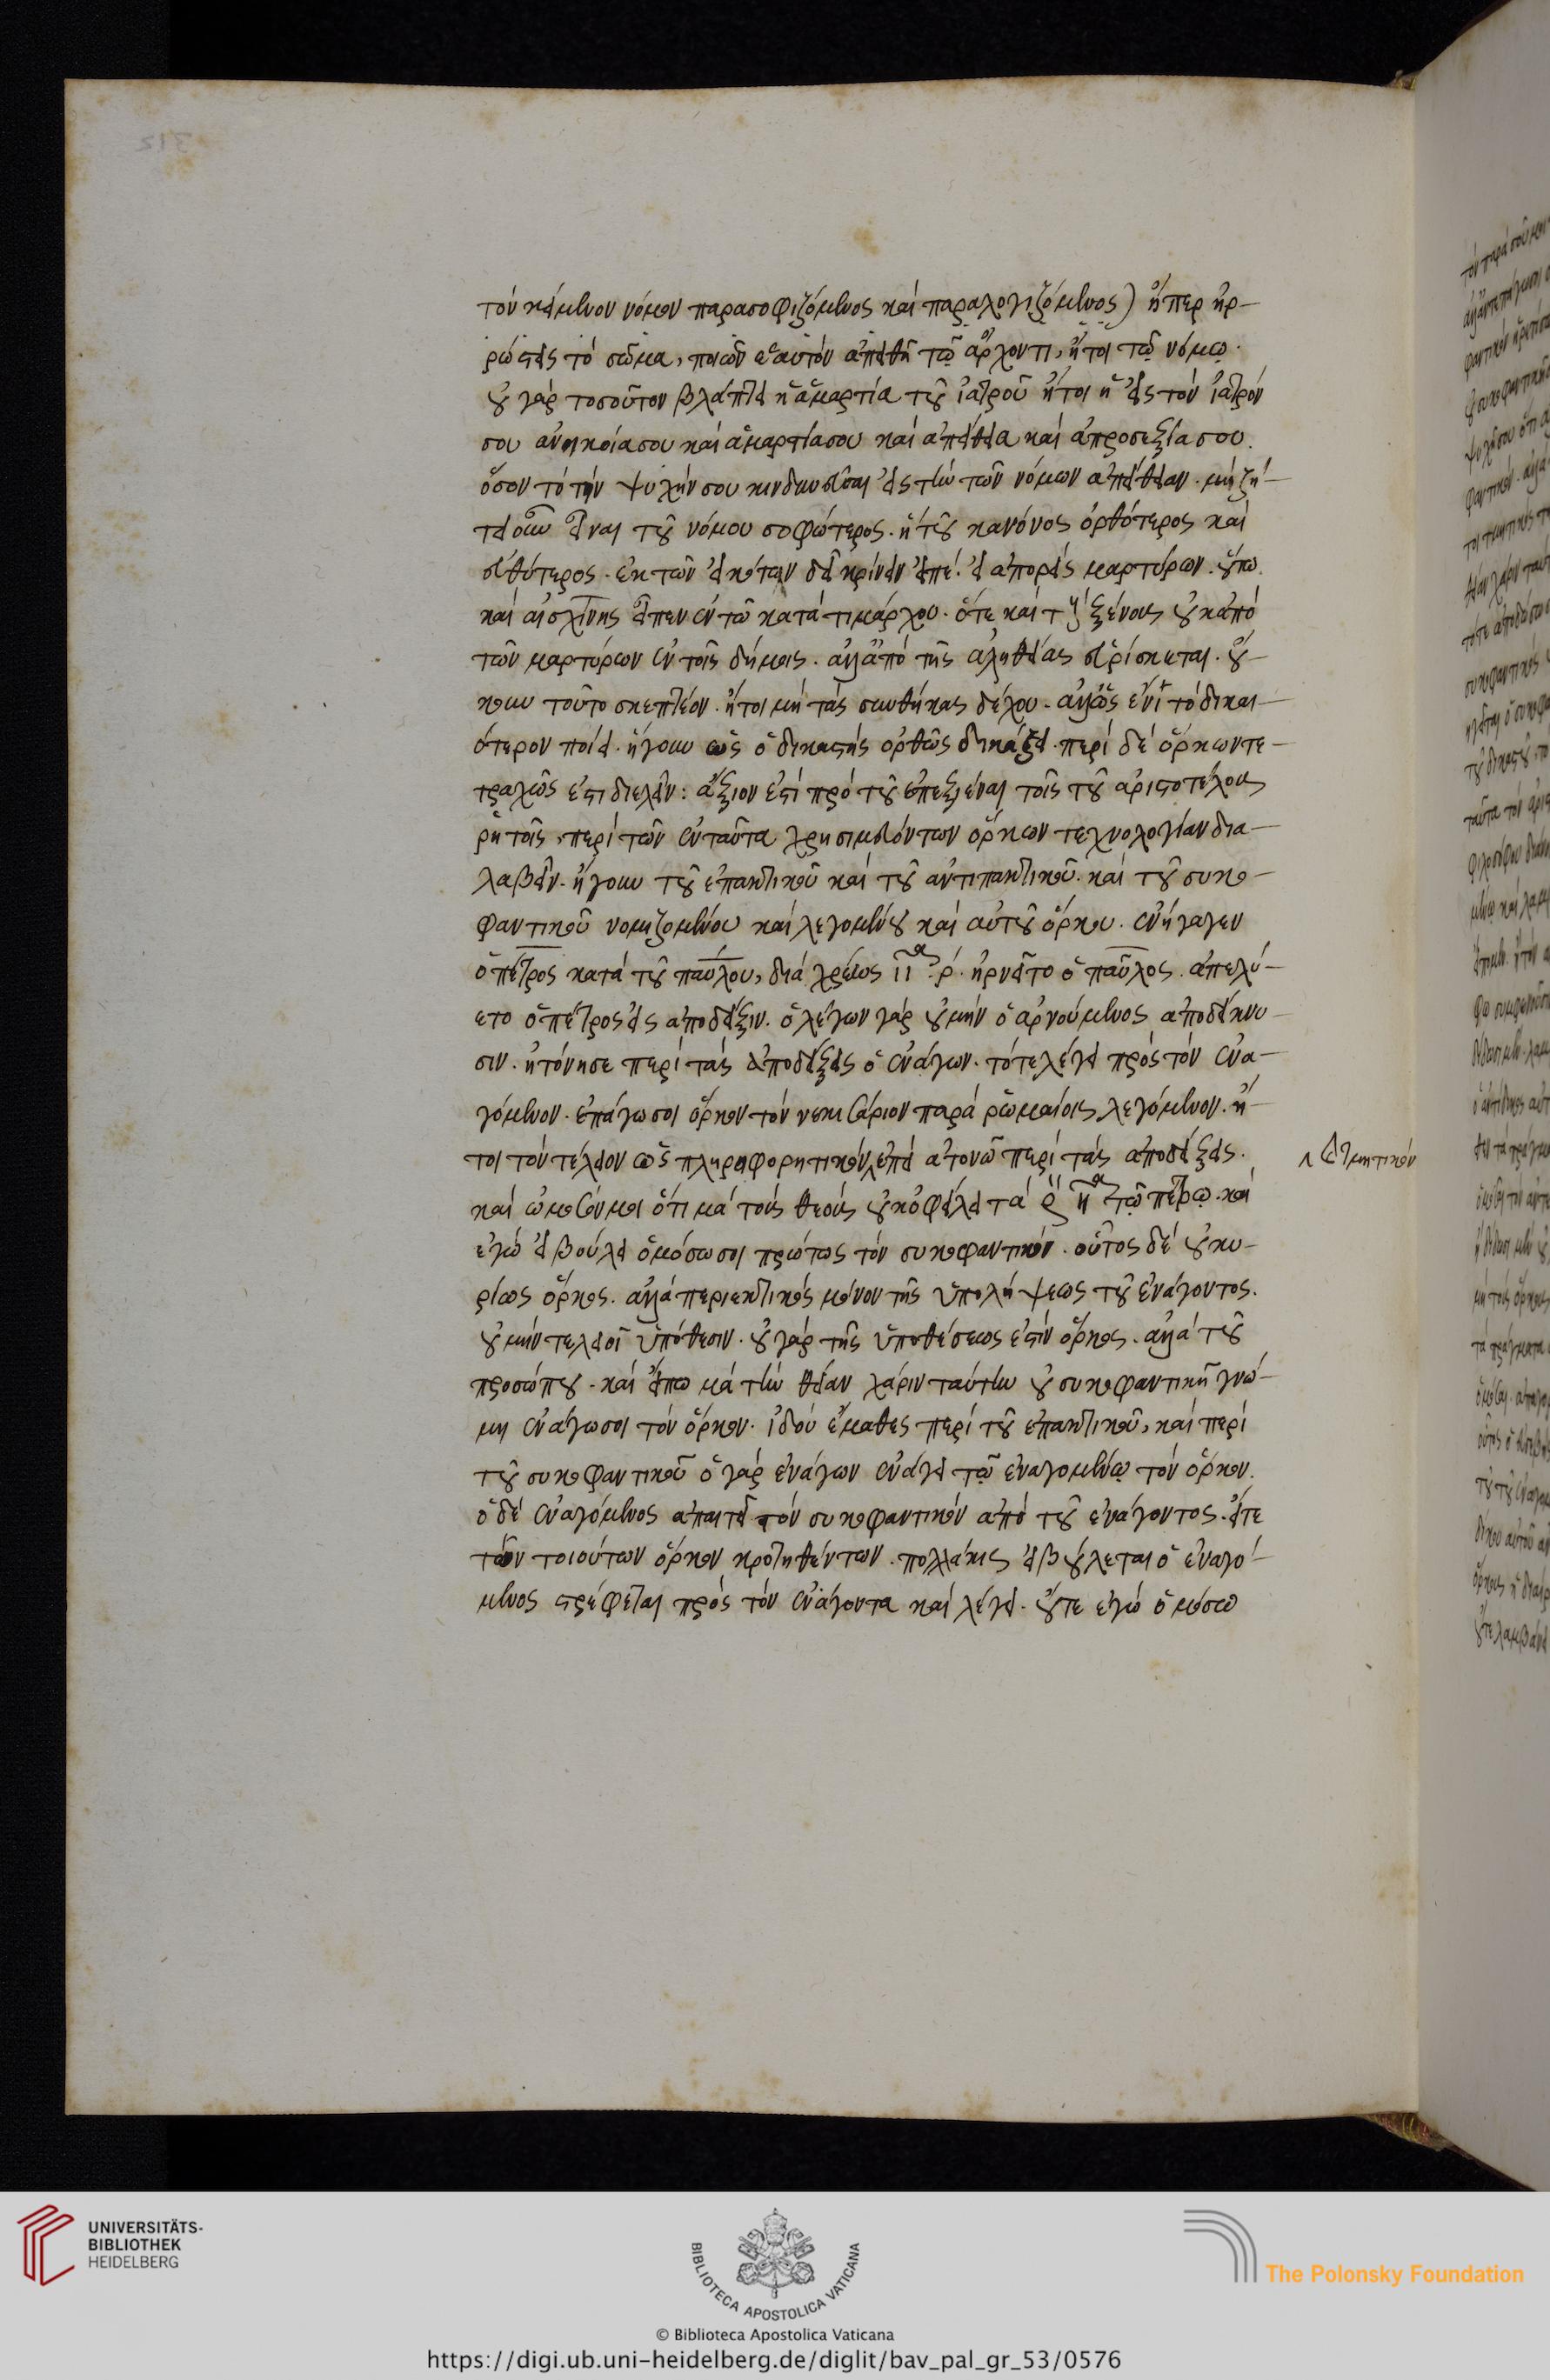 τὸν κείμενον νόμον παρασοφιζόμενος καὶ παραλογιζόμενος) ἤπερ ἠρ-
ρώστεις τὸ σῶμα, ποιῶν ἑαυτὸν ἀπειθῆ τῷ ἄρχοντι, ἤτοι τῷ νόμῳ.
οὐ γὰρ τοσοῦτον βλάπτει ἡ ἁμαρτία τοῦ ἰατροῦ ἤτοι ἡ εἰς τὸν ἰατρόν
σου ἀνηκοΐα σου καὶ ἁμαρτία σου καὶ ἀπείθεια καὶ ἀπροσεξία σου.
ὅσον τὸ τὴν ψυχήν σου κινδυνεῦσαι εἰς τὴν τῶν νόμων ἀπείθειαν. μὴ ζή-
τει οὖν εἶναι τοῦ νόμου σοφώτερος. ἢ τοῦ κανόνος ὀρθότερος καὶ
εὐθύτερος. ἐκ τῶν εἰκότων δεῖ κρίνειν εἰπέ. εἰ ἀπορεῖς μαρτύρων. οὕτω
καὶ αἰσχίνης εἶπεν ἐν τῷ κατὰ τιμάρχου. ὅτε καὶ τοὺς ξένους οὐκ ἀπὸ
τῶν μαρτύρων ἐν τοῖς δήμοις. ἀλλ' ἀπὸ τῆς ἀληθείας εὑρίσκεται. οὔ-
κουν τοῦτο σκεπτέον. ἤτοι μὴ τὰς συνθήκας δέχου. ἀλλ' ὡς ἔνι τὸ δικαι-
ότερον ποίει. ἤγουν ὡς ὁ δικαστὴς ὀρθῶς δικάζει. περὶ δὲ ὅρκων τε-
τραχῶς ἔστι διελεῖν: ἄξιον ἐστὶ πρὸ τοῦ ἐπεξιέναι τοῖς τοῦ ἀριστοτέλους
ῥητοῖς, περὶ τῶν ἐνταῦτα χρησιμευόντων ὅρκων τεχνολογίαν δια-
λαβεῖν. ἤγουν τοῦ ἐπακτικοῦ καὶ τοῦ ἀντιπακτικοῦ. καὶ τοῦ συκο-
φαντικοῦ νομιζομένου καὶ λεγομένου καὶ αὐτοῦ ὅρκου. ἐνήγαγεν
ὁ πέτρος κατὰ τοῦ παύλου, διὰ χρέως ρ. ἠρνεῖτο ὁ παῦλος. ἀπελύ-
ετο ὁ πέτρος εἰς ἀπόδειξιν. ὁ λέγων γὰρ οὐ μὴν ὁ ἀρνούμενος ἀποδείκνυ-
σιν. ἠτόνησε περὶ τὰς ἀποδείξεις ὁ ἐνάγων. τότε λέγει πρὸς τὸν ἐνα-
γόμενον. ἐπάγω σοι ὅρκον τὸν νεκεσάριον παρὰ ῥωμαίοις λεγόμενον. ἤ-
τοι τὸν τέλειον ὡς πληροφορητικὸν ἐπεὶ ἀτονῶ περὶ τὰς ἀποδείξεις.
καὶ ὤμοσόν μοι ὅτι μὰ τοὺς θεοὺς οὐκ ὀφείλει τὰ ρ τῷ πέτρῳ. καὶ
ἐγὼ εἰ βούλει ὀμόσω σοι πρώτως τὸν συκοφαντικόν. οὗτος δὲ οὐ κυ-
ρίως ὅρκος. ἀλλὰ περιεκτικὸς μόνον τῆς ὑπολήψεως τοῦ ἐνάγοντος.
οὐ μὴν τελειοῖ ὑπόθεσιν. οὐ γὰρ τῆς ὑποθέσεως ἐστὶν ὅρκος. ἀλλὰ τοῦ
προσώπου. καὶ εἴπω μὰ τὴν θείαν χάριν ταύτην οὐ συκοφαντικῇ γνώ-
μῃ ἐνάγω σοι τὸν ὅρκον. ἰδοὺ ἔμαθες περὶ τοῦ ἐπακτικοῦ, καὶ περὶ
τοῦ συκοφαντικοῦ ὁ γὰρ ἐνάγων ἐνάγει τῷ ἐναγομένῳ τὸν ὅρκον.
ὁ δὲ ἐναγόμενος ἀπαιτεῖ τὸν συκοφαντικὸν ἀπὸ τοῦ ἐνάγοντος. εἶτε
τῶν τοιούτων ὅρκων κροτηθέντων. πολλάκις εἰ βούλεται ὁ ἐναγό-
μενος στρέφεται πρὸς τὸν ἐνάγοντα καὶ λέγει. οὔτε ἐγὼ ὀμόσω
UNIVERSITÄTS-
BIBLIOTHEK
HEIDELBERG
BIBLIOTECA APOSTOLICA VATICANA
© Biblioteca Apostolica Vaticana
The Polonsky Foundation
https://digi.ub.uni-heidelberg.de/diglit/bav_pal_gr_53/0576